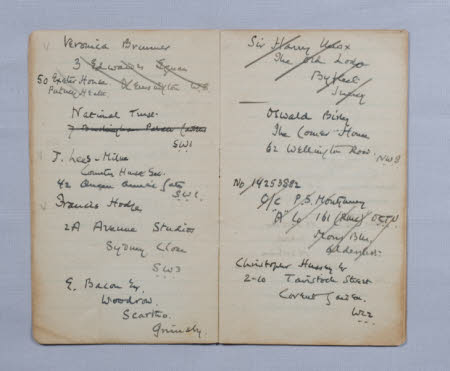 Veronica Brunner
3 Edwardes Square
50 Exeter House Kensington W8
Putney Heath
National Trust
7 Buckingham Palace Gardens
SW1
J. Lees-Milne
Country House Sec.
42 Queen Anne's Gate
SW1
Francis Hodge
2A Avenue Studios
Sydney Close
SW3
E. Bacon Esq.
Woodrow
Scartho
Grimsby.
Sir Harry
The Old Lodge
Byfleet
Surrey
Oswald Birley
The Corner House
62 Wellington Row.
NW8
No 14253802
O/C P.S. Montgomery
"A" Co 161 (RMC) OCTU
Mons Bks
Aldershot
Christopher Hussey Esq
2-10 Tavistock Street
Covent Garden.